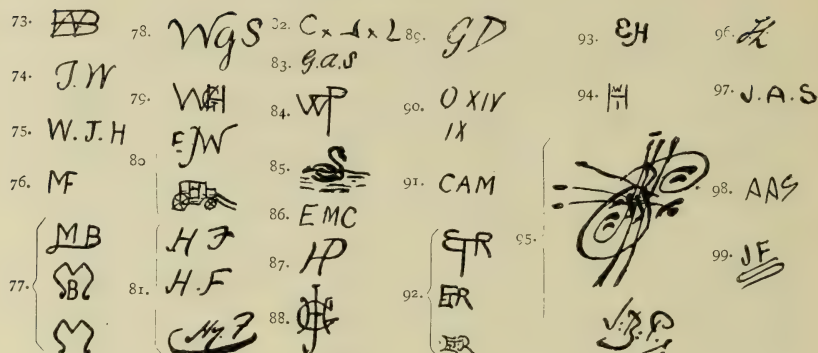 73. WB
74. J.W
75. W.J.H
76. MF
77. MB
MB
M
78. WGS
79. WH
80. EJW
81. HF
H.F
Hy. F
82. C x J x L
83. G.a.S
84. WP
85.
86. EMC
87. HP
88.
89. GD
90. O XIV
IX
91. CAM
92. ETR
ETR
ETR
93. EH
94. H
95.
96.
97. J.A.S
98. AAS
99. JF